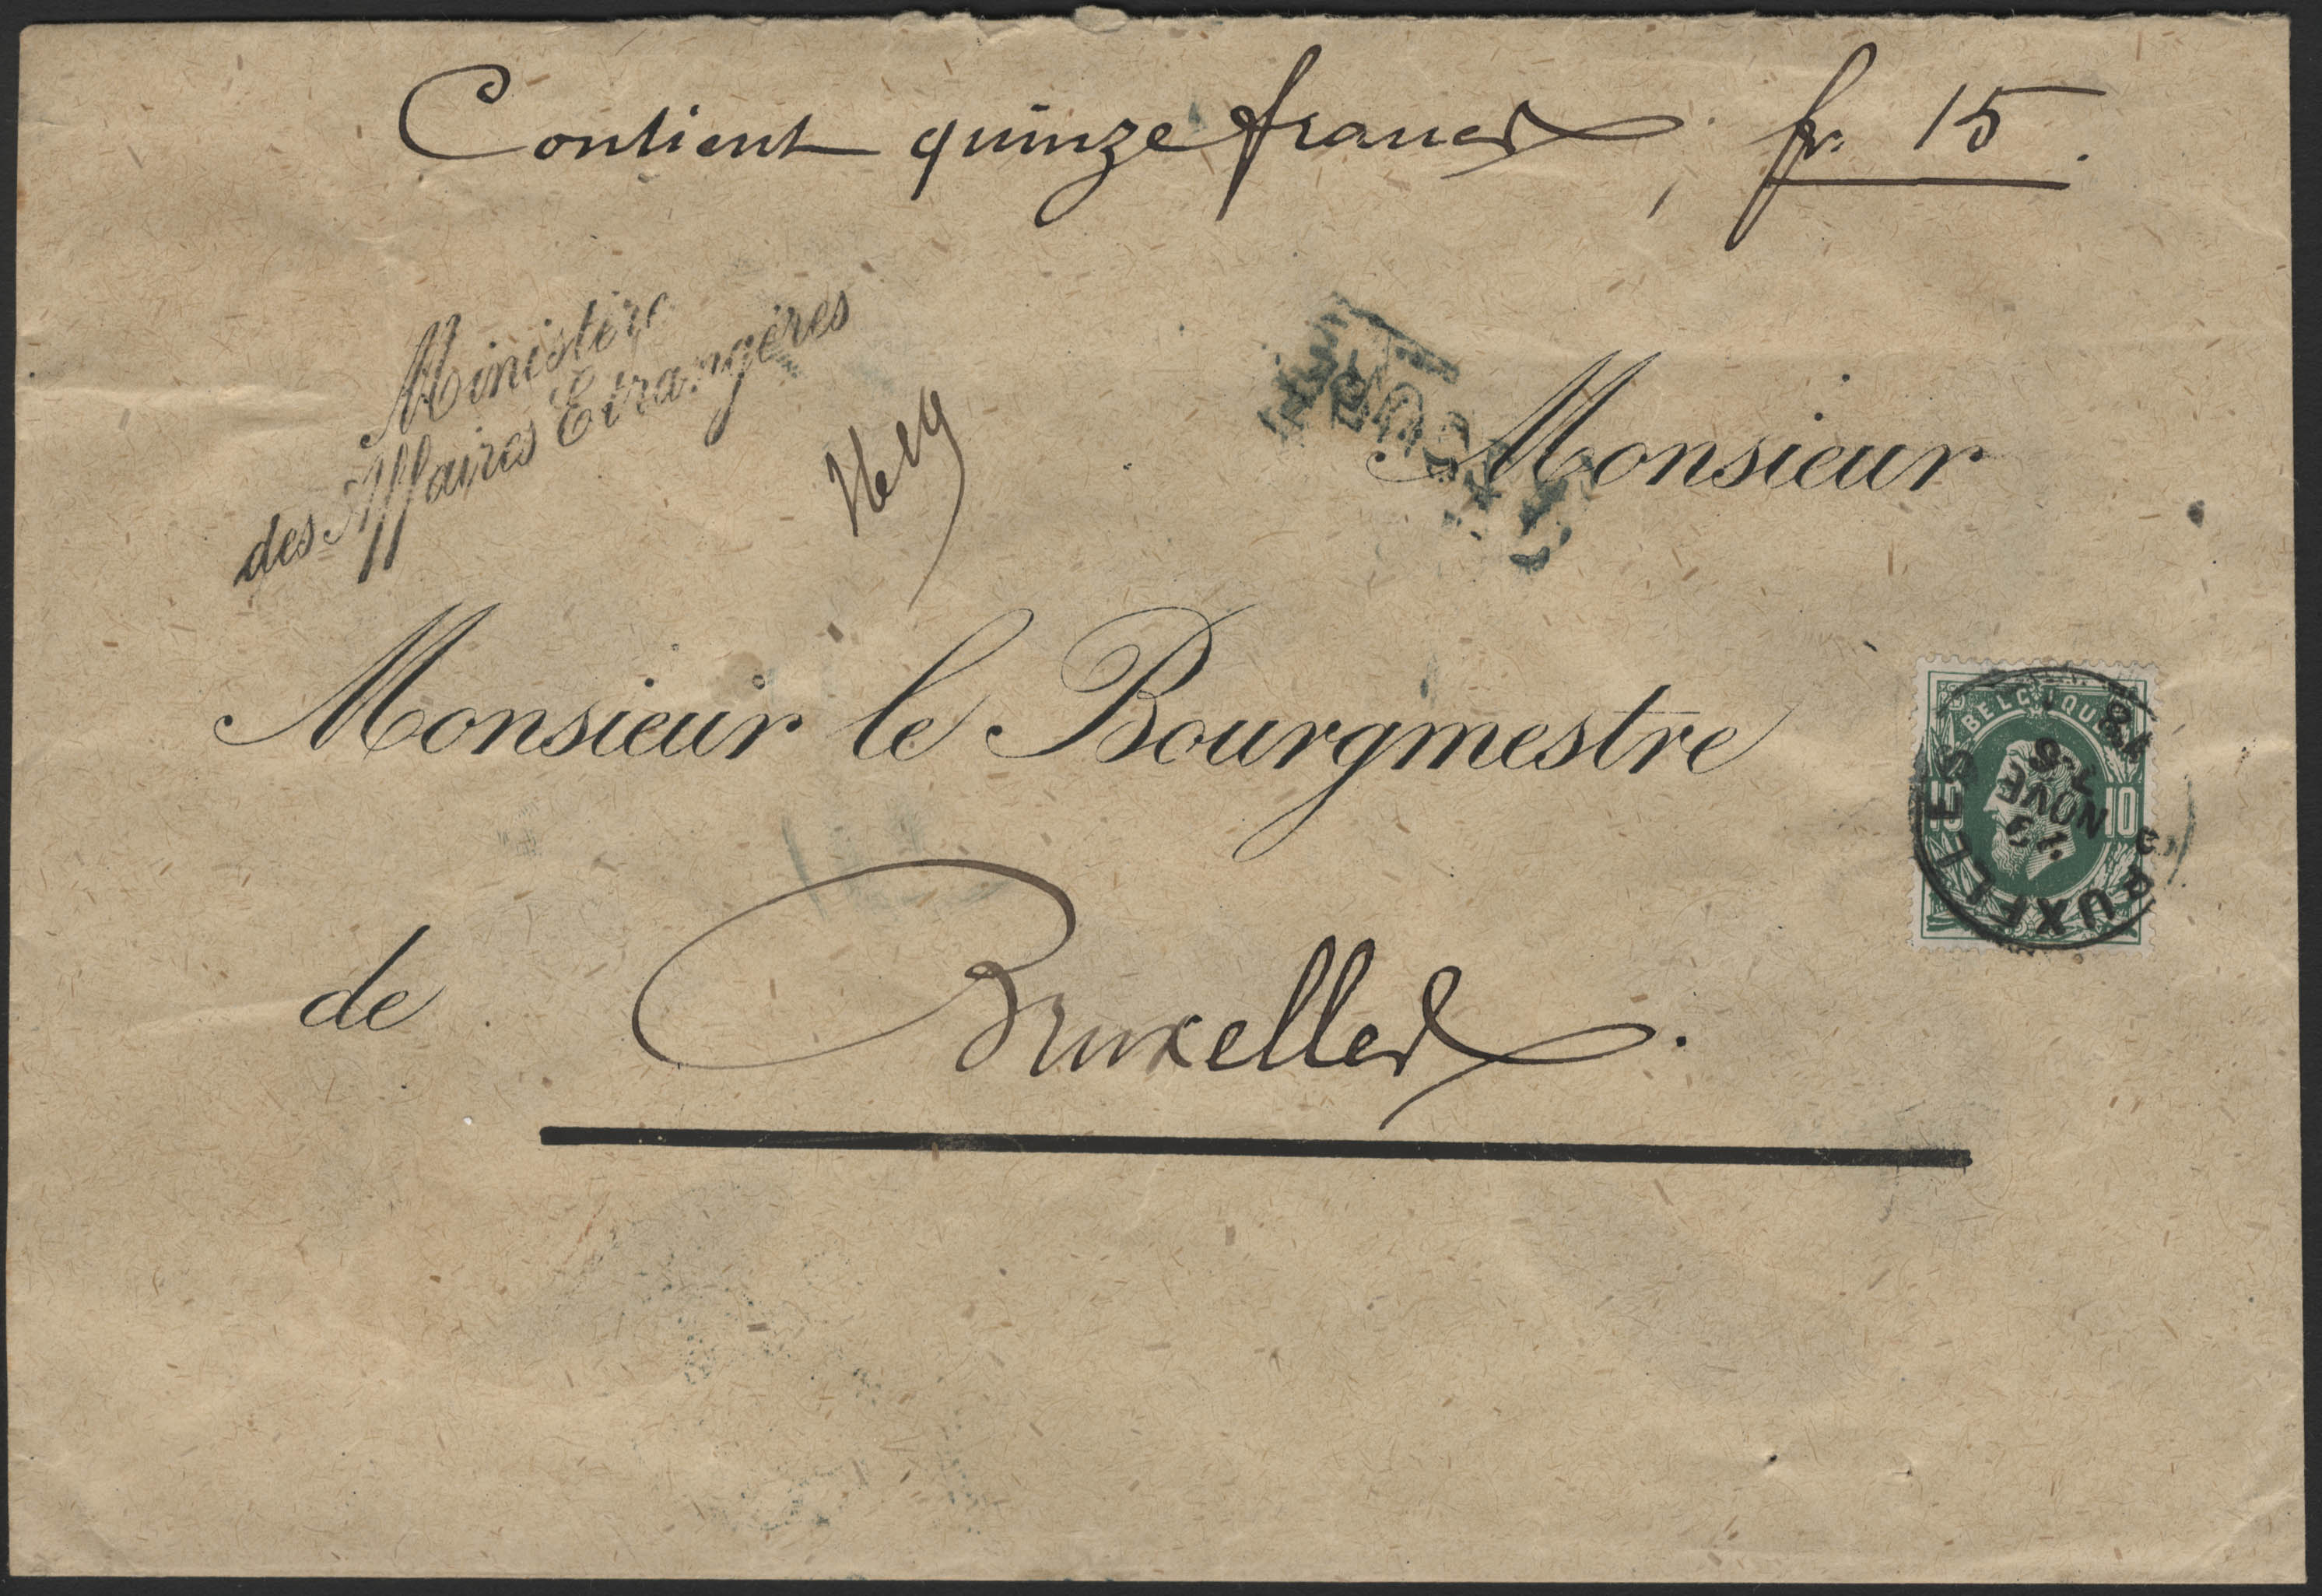 Contient quinze francs, fr. 15.
Ministère
des Affaires Etrangères
Monsieur
Monsieur le Bourgmestre
de Bruxelles.
BELGIQUE
10
BRUXELLES
NOVE